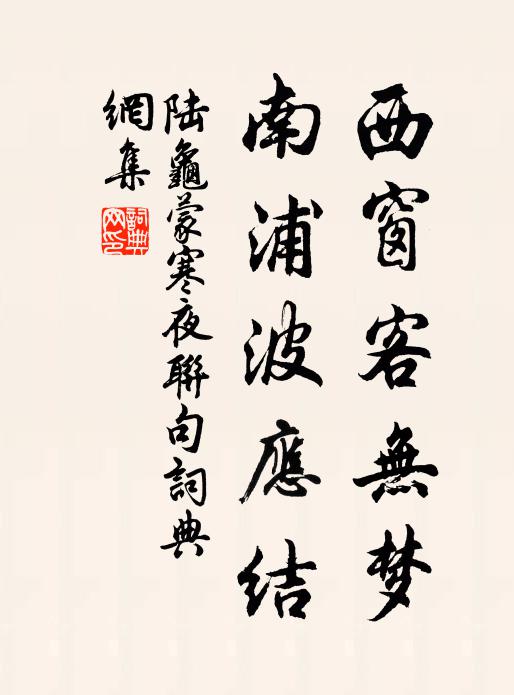 西窗客無梦
南浦波應结
陆龜蒙寒夜聯句詞典
網集
詞典网印